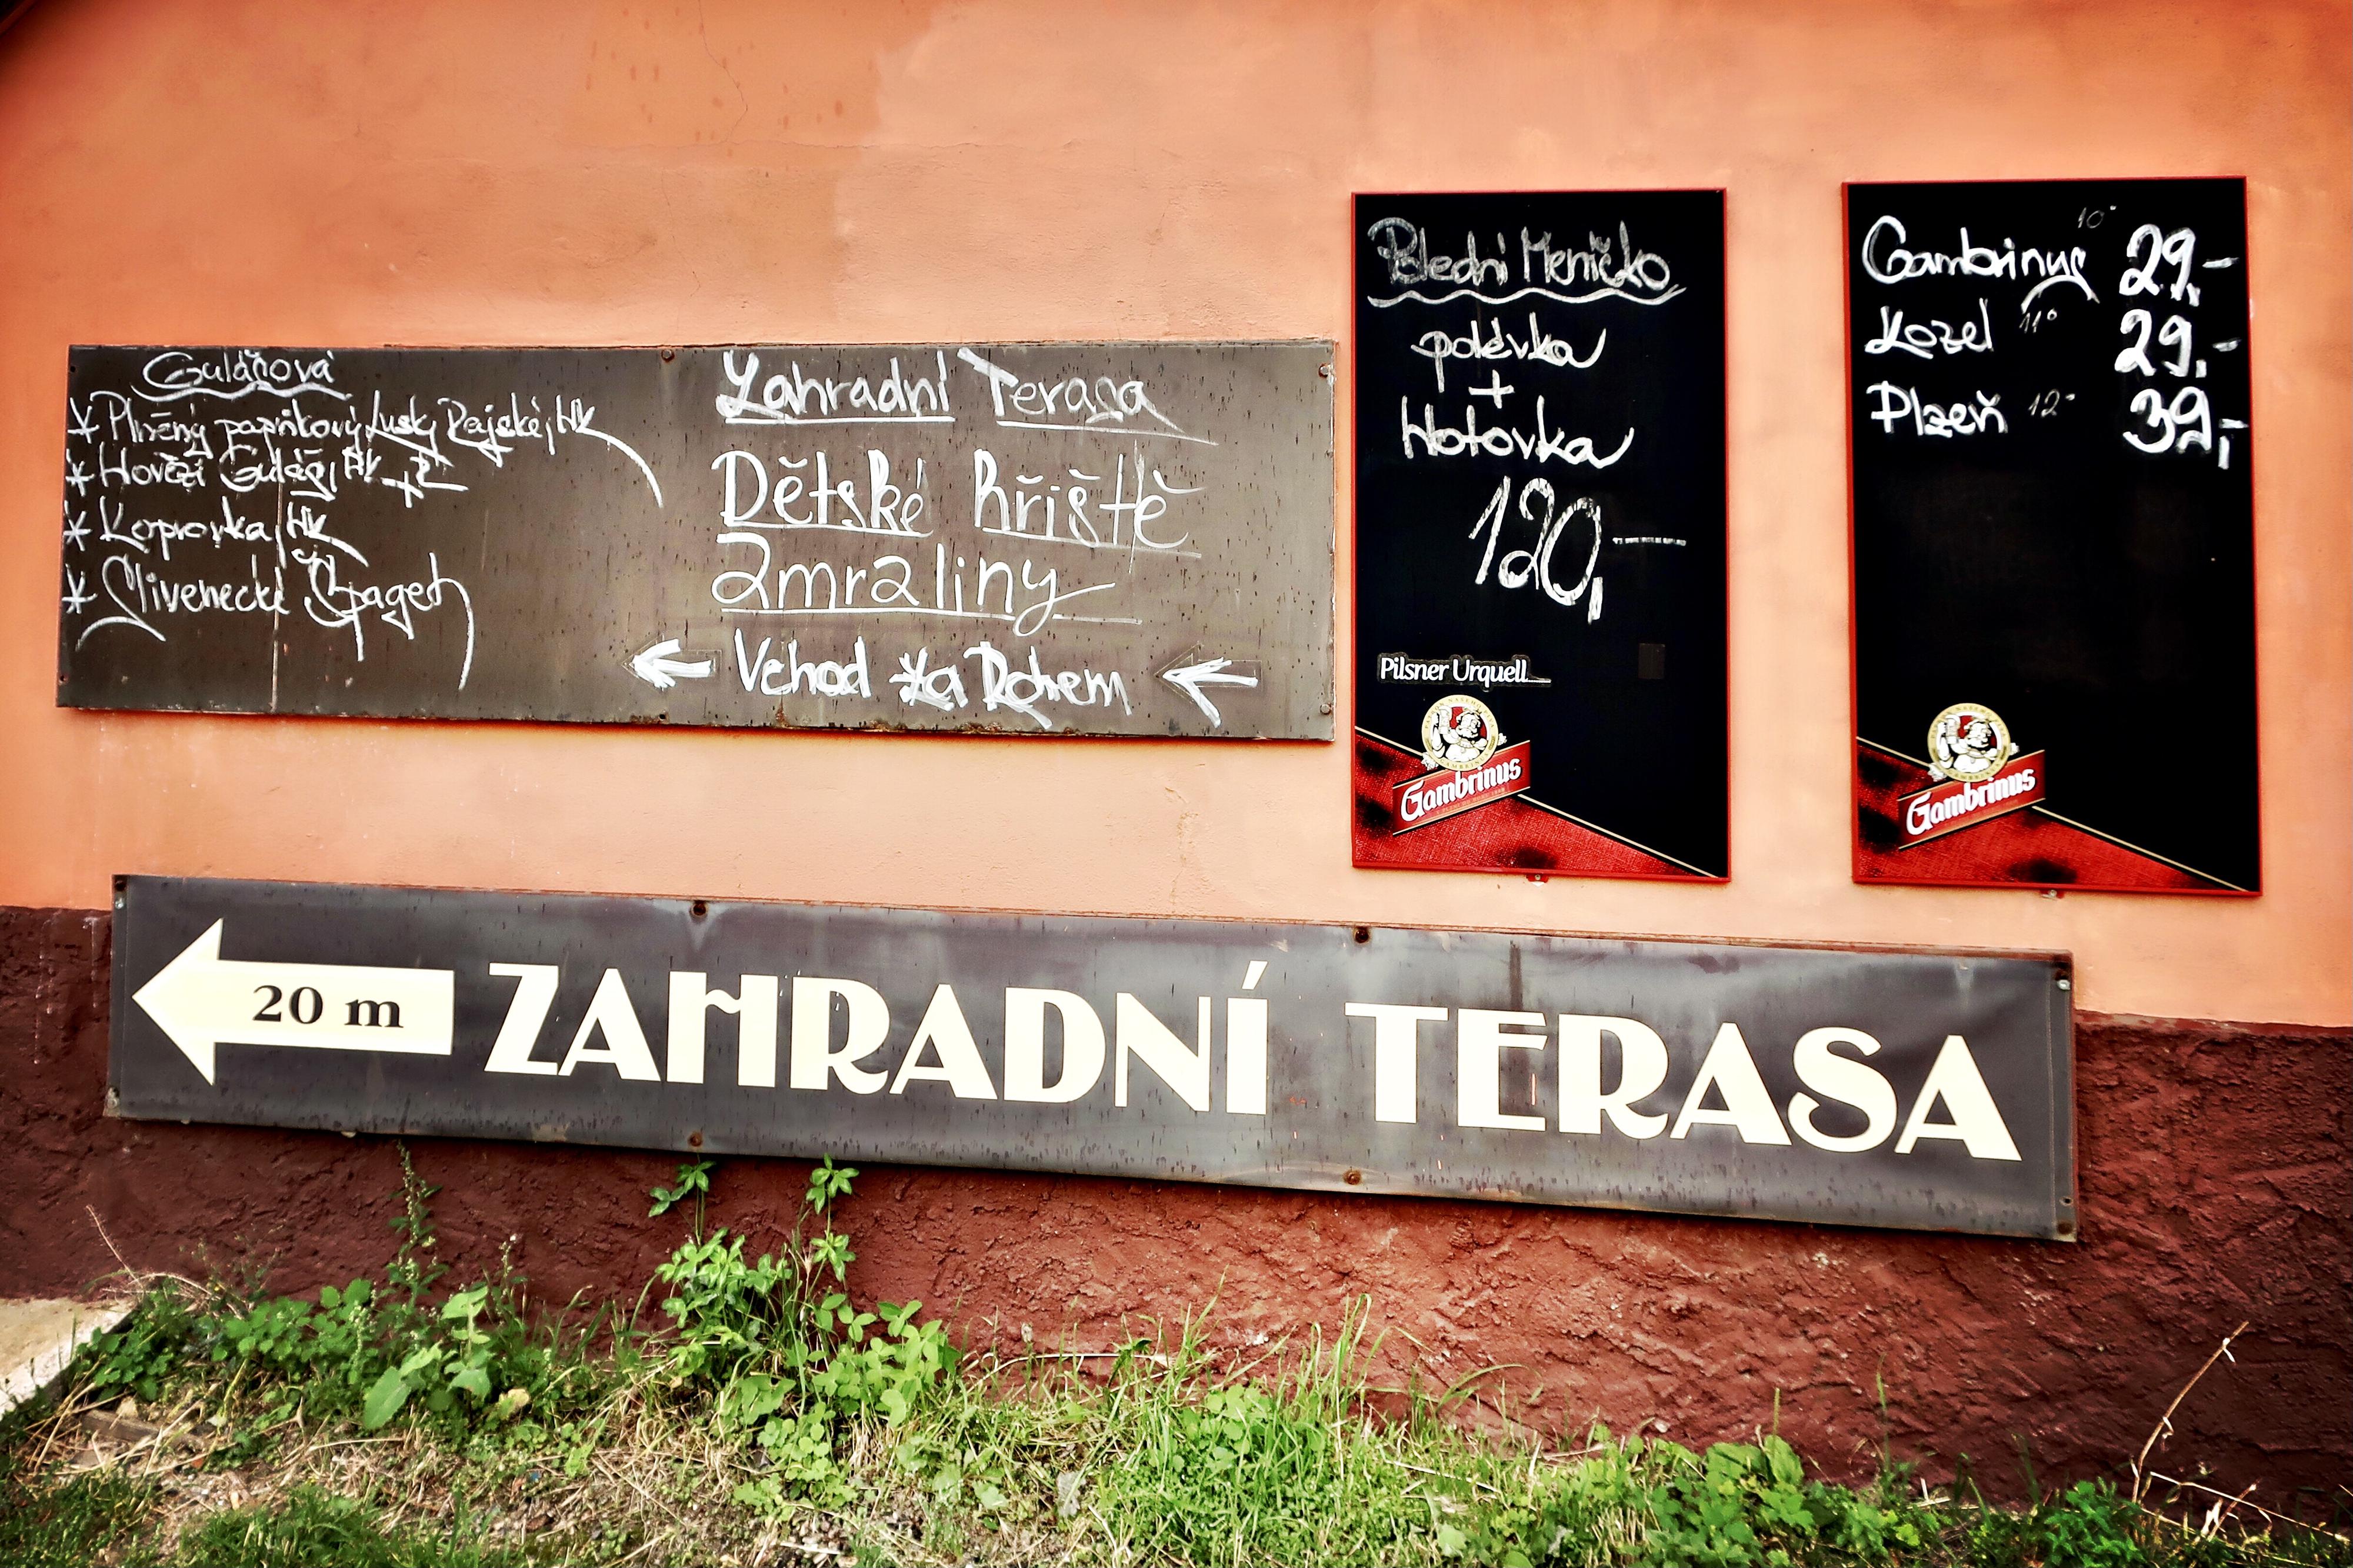 Gulášová
* Plněný paprikový lusky Rajská, HK
* Hovězí Guláš, HK
* Koprovka, HK
* Slivenecké Spagety
Zahradní Terasa
Dětské hřiště
Zmrzliny
Vchod za Rohem
Polední Meníčko
polévka
+
Hotovka
120,-
Pilsner Urquell
Gambrinus
Gambrinus 10° 29,-
Kozel 11° 29,-
Plzeň 12° 39,-
Gambrinus
20 m ZAHRADNÍ TERASA